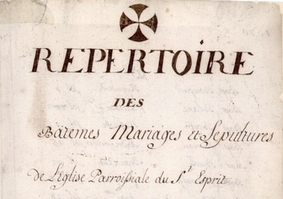 REPERTOIRE
DES
Batemes Mariages et Sepultures
de L'Eglise Parroissiale du St Esprit